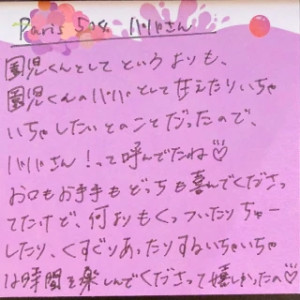 Paris 5つ星 パパさん
園児くんとしてというよりも、
園児くんのパパとして甘えたりいちゃ
いちゃしたいとのことだったので、
パパさん！って呼んでたね♡
お口もお手手もどっちも喜んでくださっ
てたけど、何よりもくっついたりちゅー
したり、くすぐりあったりするいちゃいちゃ
な時間を楽しんでくださって嬉しかったの♡